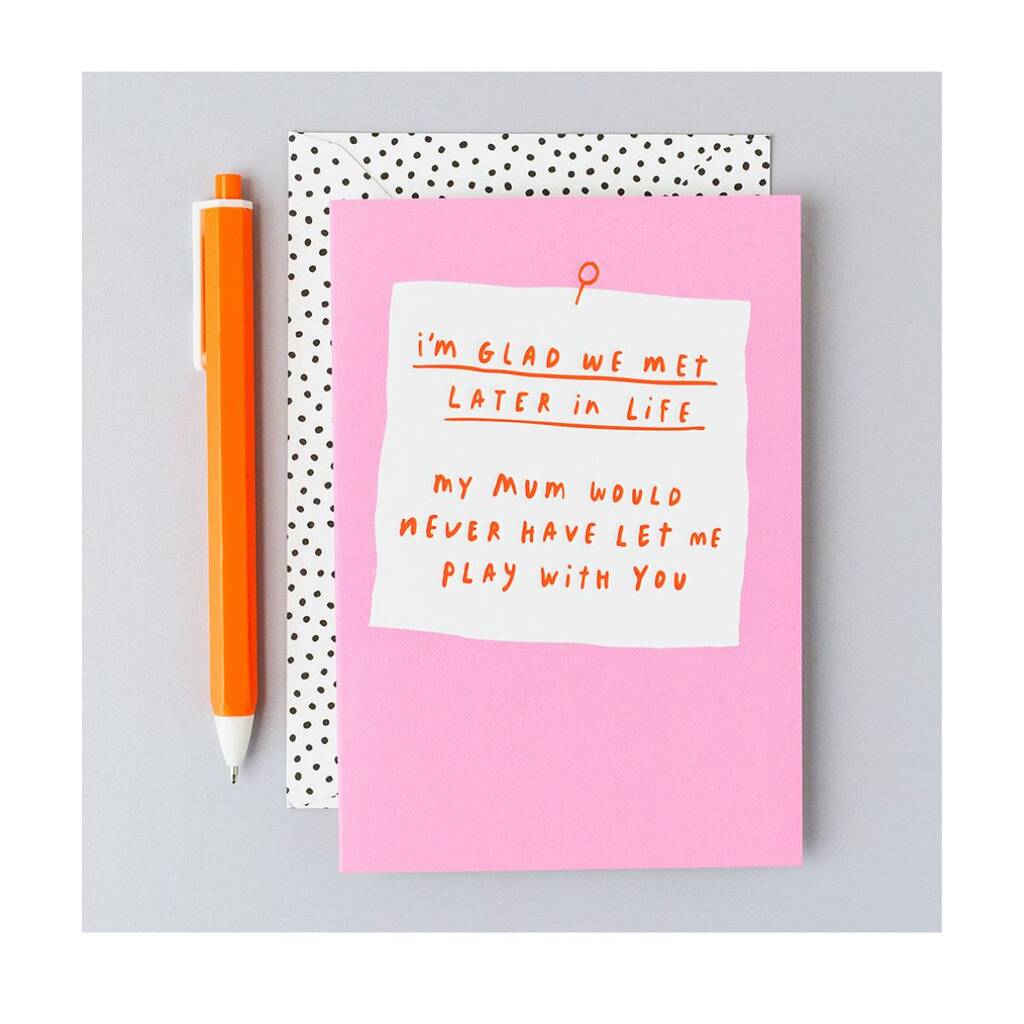 i'm GLAD WE mEt
LATER in LiFE
my mum WOULD
nEVER HAVE LEt mE
PLAY WitH YOU